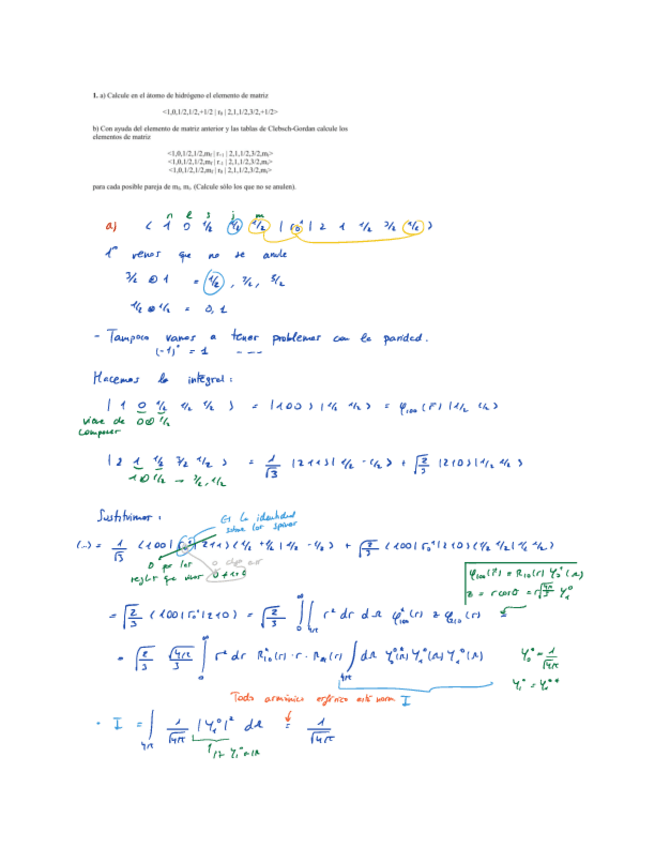 1. a) Calcule en el átomo de hidrógeno el elemento de matriz
<1,0,1/2,1/2,+1/2 | r₀ | 2,1,1/2,3/2,+1/2>
b) Con ayuda del elemento de matriz anterior y las tablas de Clebsch-Gordan calcule los
elementos de matriz
para cada posible pareja de (Calcule sólo los que no se anulen).
n l s j m
a) < 1 0 1/2 1/2 1/2 | r₀¹ | 2 1 1/2 3/2 1/2 >
1º vemos que no se anule
3/2 ⊗ 1 = 1/2, 3/2, 5/2
1/2 ⊗ 1/2 = 0, 1
- Tampoco vamos a tener problemas con la paridad.
Hacemos la integral:
| 1 0 1/2 1/2 1/2 > = |100> |1/2 1/2> = φ₁₀₀(r⃗) |1/2 1/2>
viene de 0⊗1/2
componer
| 2 1 1/2 3/2 1/2 > = 1/√3 |211> |1/2 -1/2> + √(2/3) |210> |1/2 1/2>
1⊗1/2 → 3/2, 1/2
Sustituimos:
Es la identidad
sobre los spines
(...) = 1/√3 <100| r₀¹ |211> <1/2 +1/2 | 1/2 -1/2> + √(2/3) <100| r₀¹ |210> <1/2 1/2 | 1/2 1/2>
0 por las
reglas que usar 0+1≠0
φ₁₀₀(r⃗) = R₁₀(r) Y₀⁰(Ω)
z = r cosθ = r √(4π/3) Y₁⁰
= √(2/3) <100| r₀¹ |210> = √(2/3) ∫₀^∞ ∫_4π r² dr dΩ φ*₁₀₀(r) z φ₂₁₀(r)
= √(2/3) √(4π/3) ∫₀^∞ r² dr R*₁₀(r) · r · R₂₁(r) ∫_4π dΩ Y₀⁰*(Ω) Y₁⁰(Ω) Y₁⁰(Ω)
Y₀⁰ = 1/√4π
Y₁⁰ = Y₁⁰*
Todo armónico esférico está norm. I
· I = ∫_4π 1/√4π |Y₁⁰|² dΩ = 1/√4π